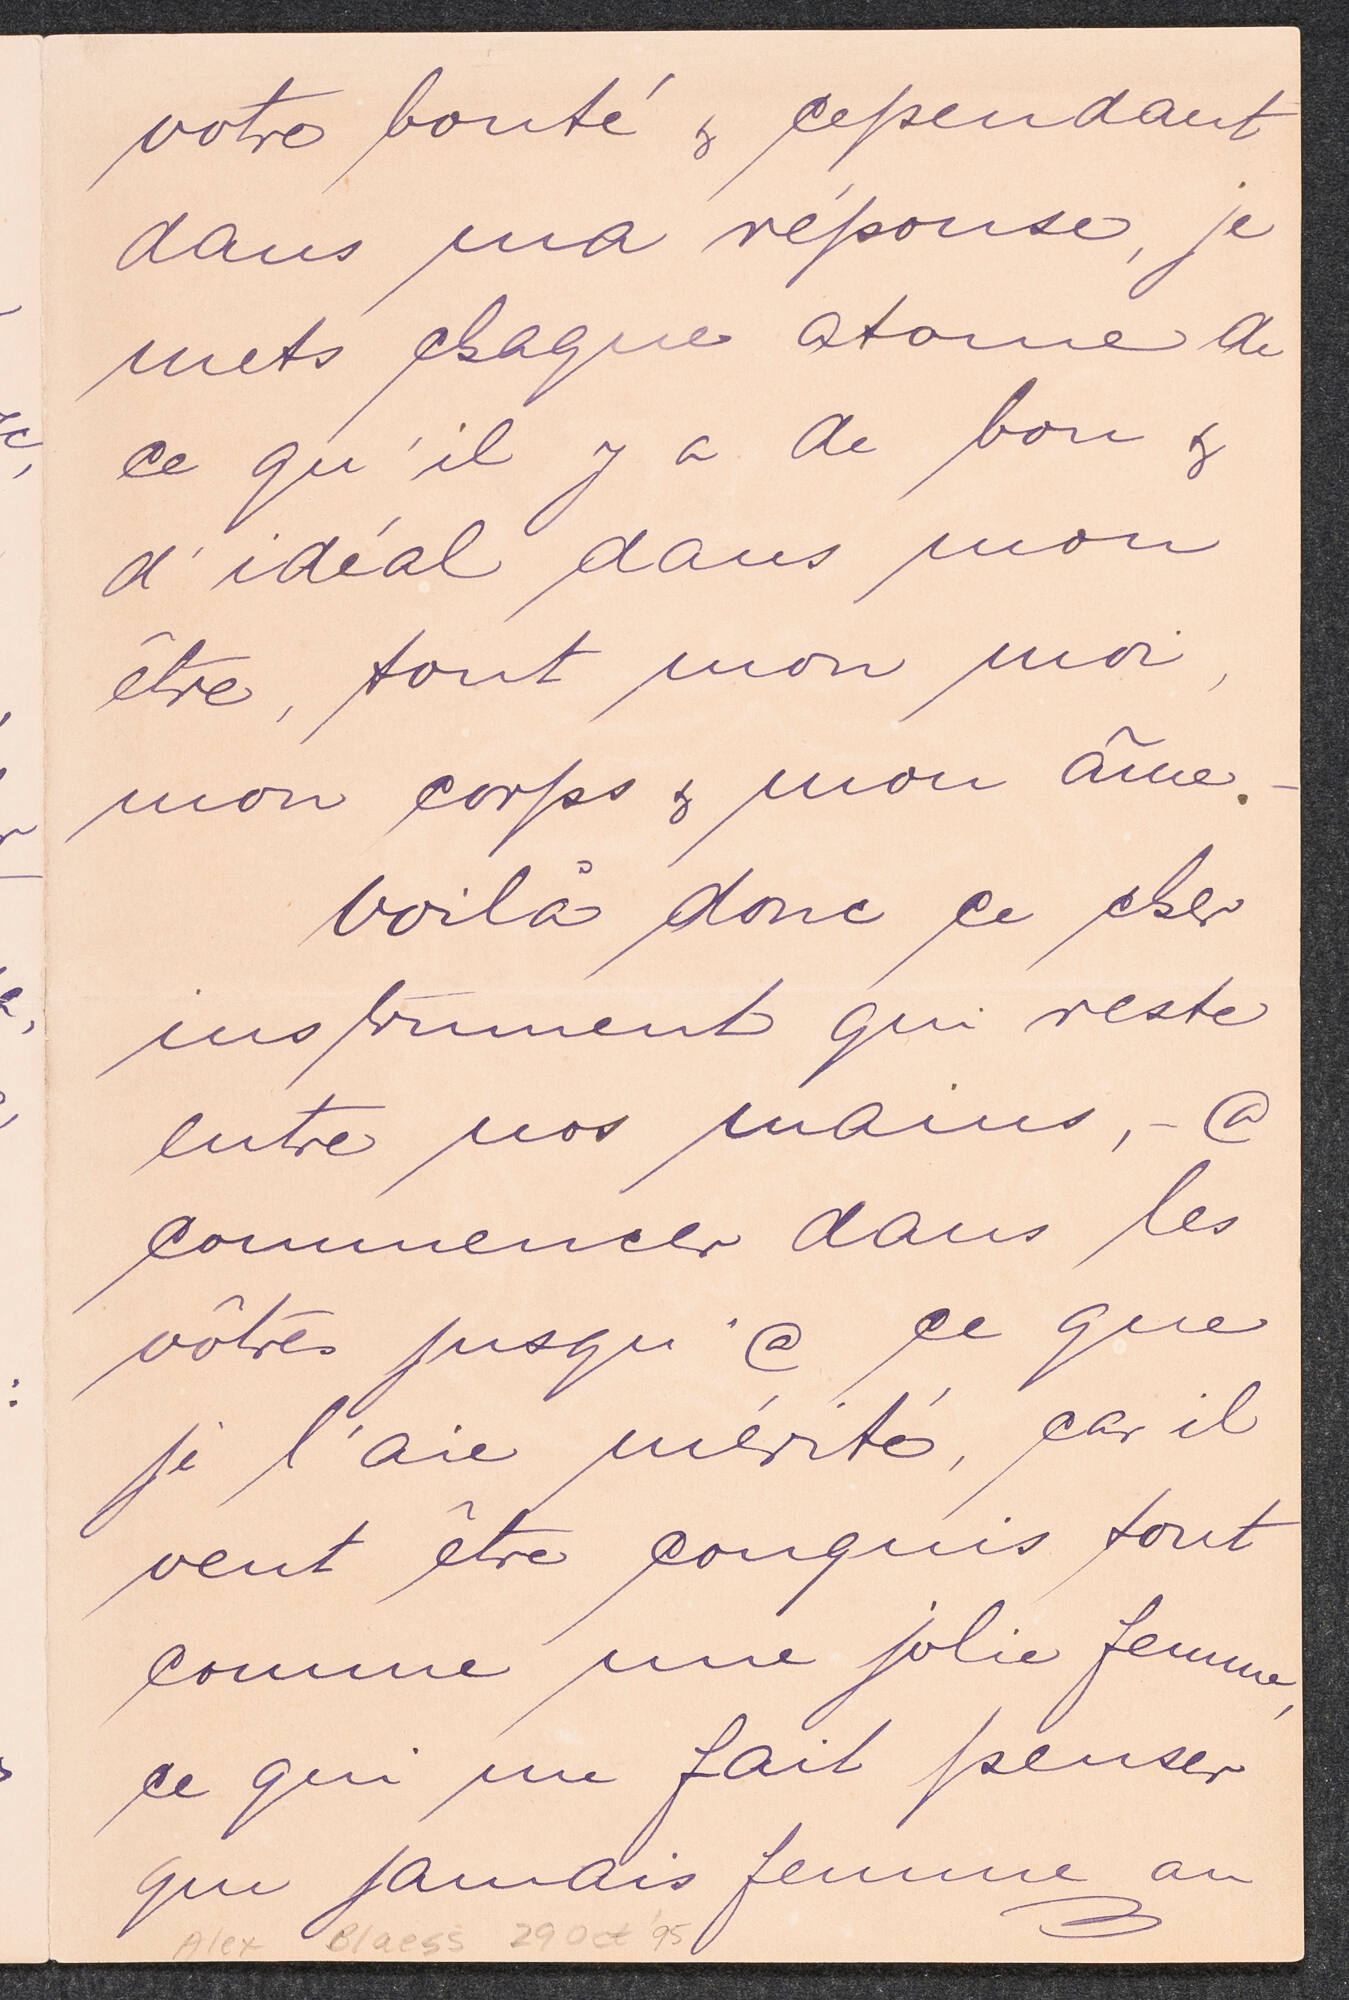 votre bonté & cependant
dans ma réponse, je
mets chaque atome de
ce qu'il y a de bon &
d'idéal dans mon
être, tout mon moi,
mon corps & mon âme. -
Voilà donc ce cher
instrument qui reste
entre nos mains, - à
commencer dans les
vôtres jusqu'à ce que
je l'aie mérité, car il
veut être conquis tout
comme une jolie femme,
ce qui me fait penser
que jamais femme au
Alex Blaess 29 Oct '95